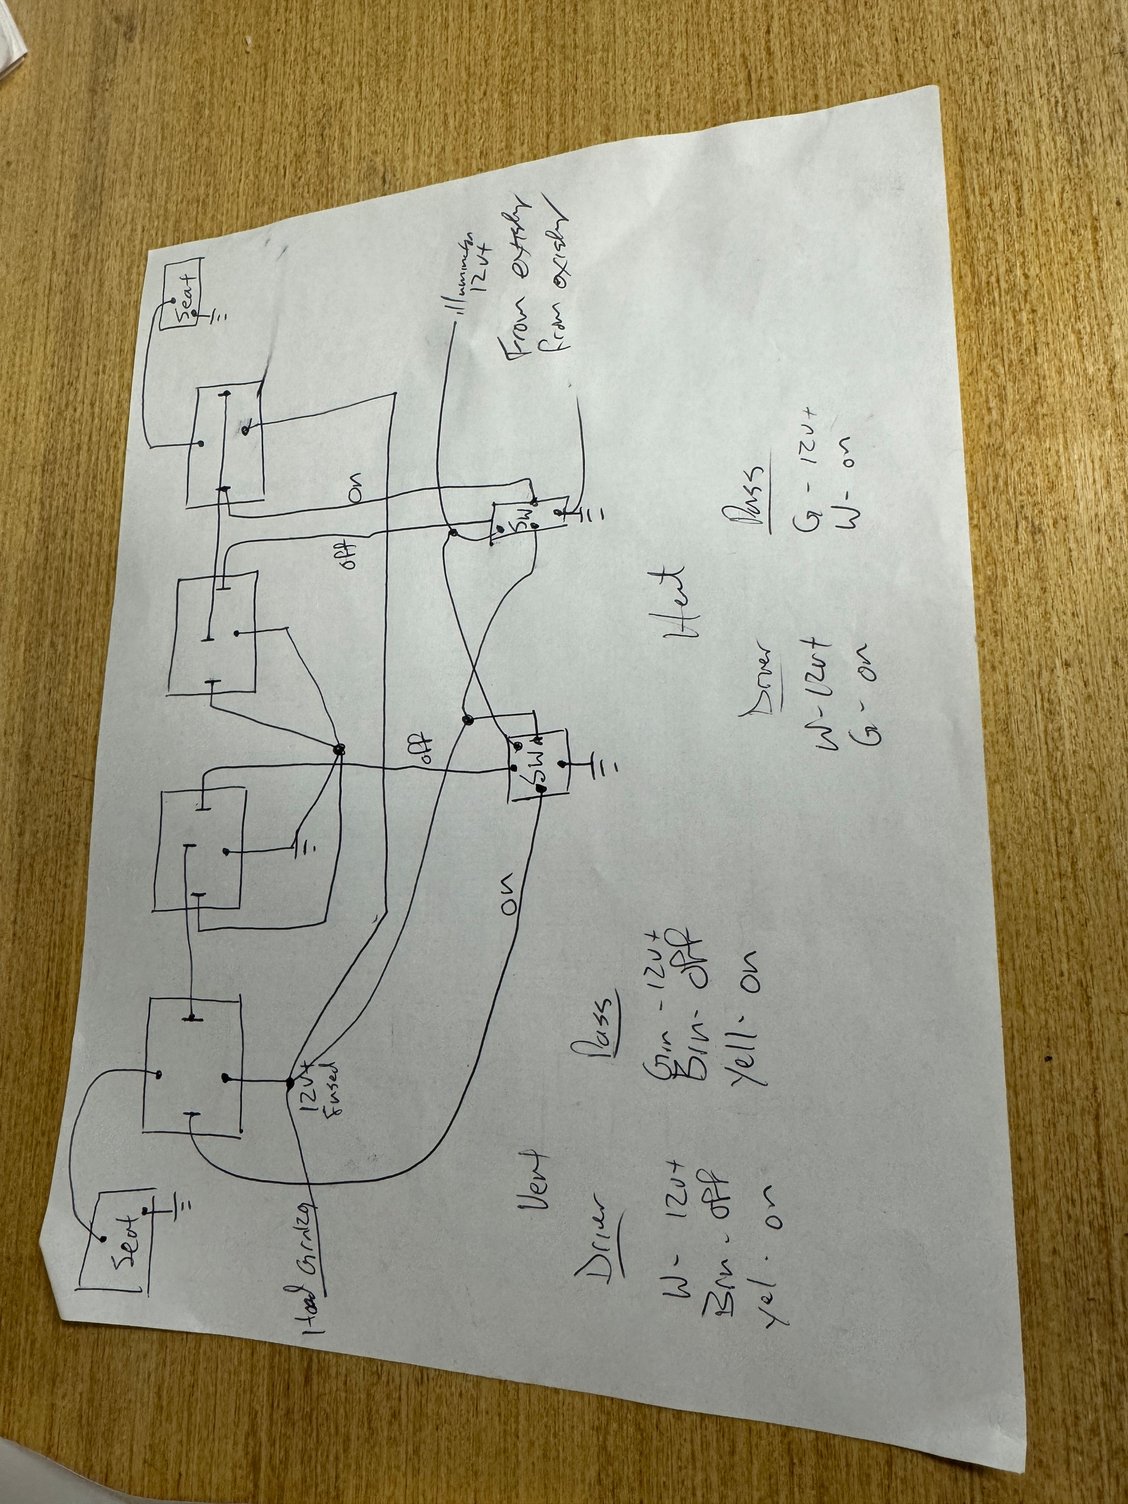 Seat
Seat
on
off
off
on
12v+
Fused
Illumination
12v+
From existing
from existing
SW
SW
Vent
Driver
W- 12v+
Brn- off
Yel- on
Pass
Grn -12v+
Brn- off
Yell- on
Heat
Driver
W-12v+
G- on
Pass
G- 12v+
W- on